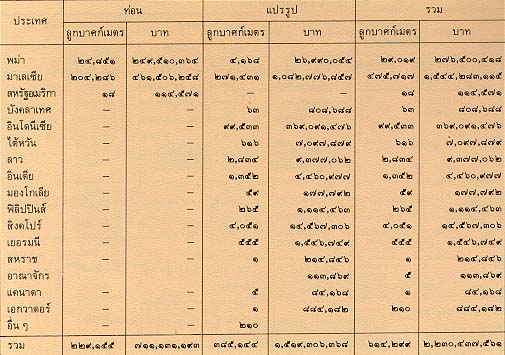 ประเทศ ท่อน แปรรูป รวม
ลูกบาศก์เมตร บาท ลูกบาศก์เมตร บาท ลูกบาศก์เมตร บาท
พม่า ๒๔,๘๕๑ ๒๔๙,๕๑๐,๓๖๔ ๔,๑๖๘ ๒๖,๙๙๐,๐๕๔ ๒๙,๐๑๙ ๒๗๖,๕๐๐,๔๑๘
มาเลเซีย ๒๐๔,๒๘๖ ๔๖๑,๕๐๖,๒๕๘ ๒๗๑,๔๓๑ ๑,๐๘๒,๗๗๖,๘๕๗ ๔๗๕,๗๑๗ ๑,๕๔๔,๒๘๓,๑๑๕
สหรัฐอเมริกา ๑๘ ๑๑๔,๕๗๑ – – ๑๘ ๑๑๔,๕๗๑
บังคลาเทศ – – ๖๓ ๘๐๘,๖๘๘ ๖๓ ๘๐๘,๖๘๘
อินโดนีเซีย – – ๙๙,๕๓๓ ๓๖๙,๐๙๑,๔๗๖ ๙๙,๕๓๓ ๓๖๙,๐๙๑,๔๗๖
ไต้หวัน – – ๖๑๖ ๗,๐๙๗,๘๗๙ ๖๑๖ ๗,๐๙๗,๘๗๙
ลาว – – ๒,๘๓๔ ๙,๓๗๗,๐๖๒ ๒,๘๓๔ ๙,๓๗๗,๐๖๒
อินเดีย – – ๑,๓๕๒ ๔,๔๖๐,๙๗๗ ๑,๓๕๒ ๔,๔๖๐,๙๗๗
มองโกเลีย – – ๕๙ ๑๗๗,๗๙๒ ๕๙ ๑๗๗,๗๙๒
ฟิลิปปินส์ – – ๒๖๕ ๑,๑๑๔,๔๖๓ ๒๖๕ ๑,๑๑๔,๔๖๓
สิงคโปร์ – – ๔,๐๕๑ ๑๔,๕๖๗,๓๐๖ ๔,๐๕๑ ๑๔,๕๖๗,๓๐๖
เยอรมนี – – ๕๕๕ ๑,๕๔๖,๗๔๙ ๕๕๕ ๑,๕๔๖,๗๔๙
สหราช – – ๑ ๒๑๔,๘๔๖ ๑ ๒๑๔,๘๔๖
อาณาจักร ๑๑๓,๘๖๙ ๕ ๑๑๓,๘๖๙
แคนาดา – – ๕ ๘๔,๑๖๘ ๑ ๘๔,๑๖๘
เอกวาดอร์ – – ๑ ๘๘๔,๑๘๒ ๒๑๐ ๘๘๔,๑๘๒
อื่น ๆ – – ๒๑๐
รวม ๒๒๙,๑๕๕ ๗๑๑,๑๓๑,๑๙๓ ๓๘๕,๑๔๔ ๑,๕๑๙,๓๐๖,๓๖๘ ๖๑๔,๒๙๙ ๒,๒๓๐,๔๓๗,๕๖๑